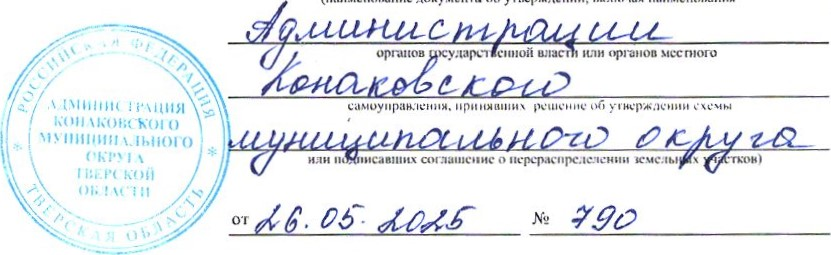 (наименование документа об утверждении, включая наименования
Администрации
органов государственной власти или органов местного
Конаковского
самоуправления, принявших решение об утверждении схемы
муниципального округа
или подписавших соглашение о перераспределении земельных участков)
от 26.05.2025 № 790
РОССИЙСКАЯ ФЕДЕРАЦИЯ
АДМИНИСТРАЦИЯ
КОНАКОВСКОГО
МУНИЦИПАЛЬНОГО
ОКРУГА
ТВЕРСКОЙ
ОБЛАСТИ
* ТВЕРСКАЯ ОБЛАСТЬ *